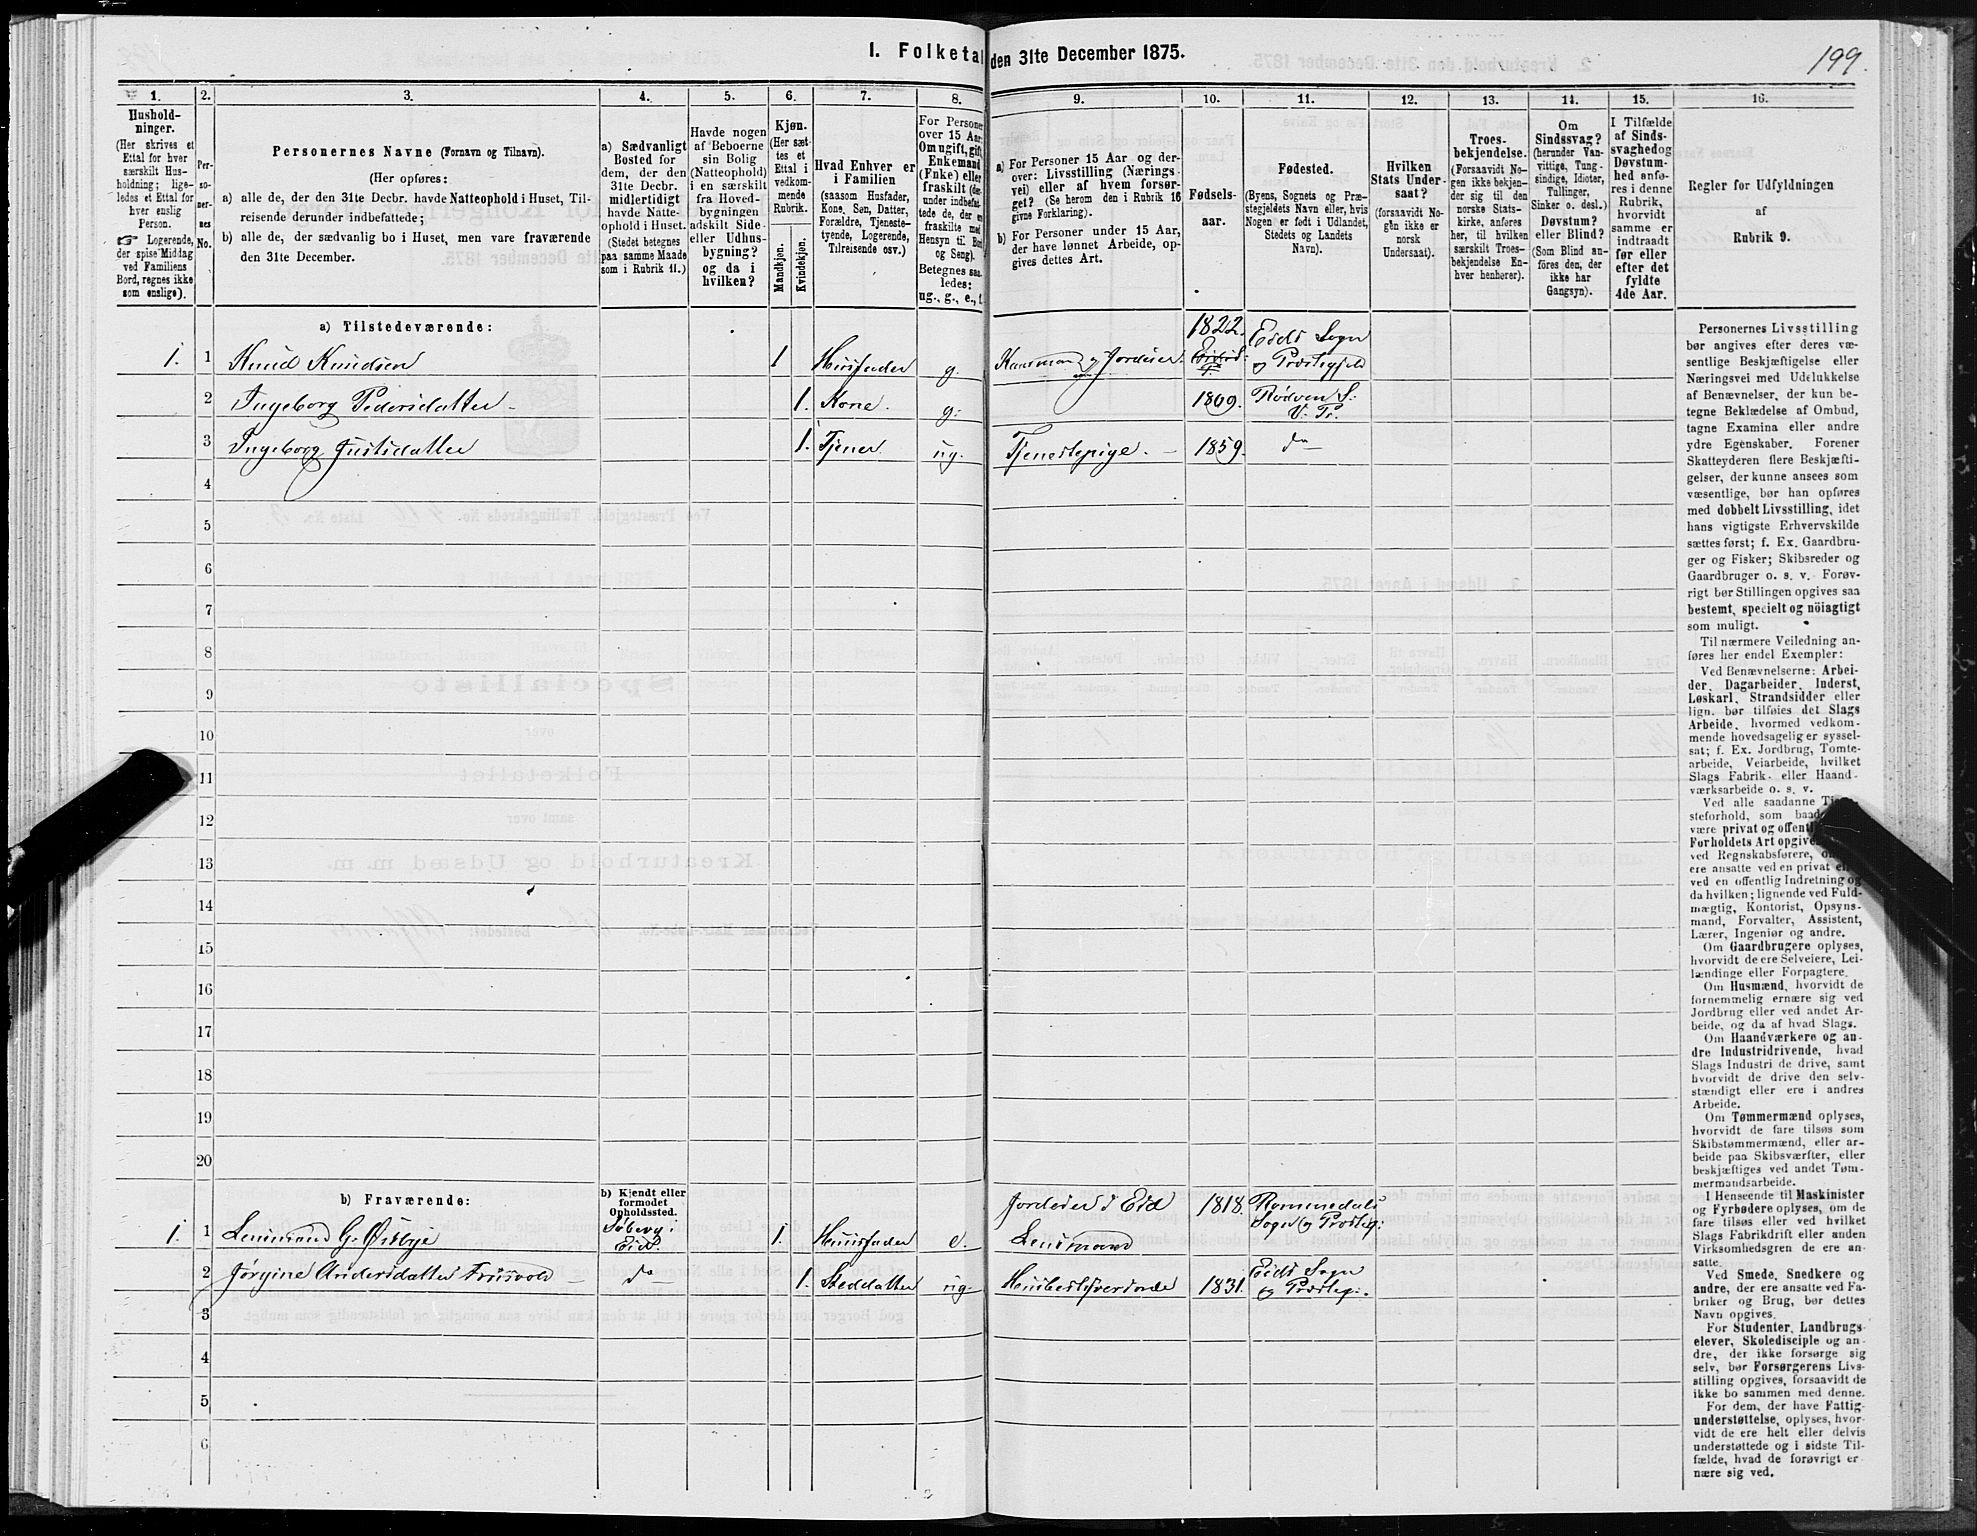 I. Folketal den 31te December 1875.
199.
1.
2.
3.
4.
5.
6.
7.
8.
9.
10.
11.
12.
13.
14.
15.
16.
Hushold-
ninger.
(Her skrives et
Ettal for hver
særskilt Hus-
holdning; lige-
ledes et Ettal for
hver enslig
Person.
☞ Logerende,
der spise Middag
ved Familiens
Bord, regnes ikke
som enslige).
Per-
so-
ner-
nes
No.
Personernes Navne (Fornavn og Tilnavn).
(Her opføres:
a) alle de, der den 31te Decbr. havde Natteophold i Huset, Til-
reisende derunder indbefattede;
b) alle de, der sædvanlig bo i Huset, men vare fraværende
den 31te December.
a) Sædvanligt
Bosted for
dem, der den
31te Decbr.
midlertidigt
havde Natte-
ophold i Huset.
(Stedet betegnes
paa samme Maade
som i Rubrik 11.)
Havde nogen
af Beboerne
sin Bolig
(Natteophold)
i en særskilt
fra Hoved-
bygningen
adskilt Side-
eller Udhus-
bygning?
og da i
hvilken?
Kjøn.
(Her sæt-
tes et
Ettal i
vedkom-
mende
Rubrik.
Mandkjøn.
Kvindekjøn.
Hvad Enhver er
i Familien
(saasom Husfader,
Kone, Søn, Datter,
Forældre, Tjeneste-
tyende, Logerende,
Tilreisende osv.)
For Personer
over 15 Aar:
Om ugift, gift,
Enkemand
(Enke) eller
fraskilt (der-
under indbefat-
tede de, der er
fraskilte med
Hensyn til Bord
og Seng).
Betegnes saa-
ledes:
ug., g., e., f.
a) For Personer 15 Aar og der-
over: Livsstilling (Nærings-
vei) eller af hvem forsør-
get? (Se herom den i Rubrik 16
givne Forklaring).
b) For Personer under 15 Aar,
der have lønnet Arbeide, op-
gives dettes Art.
Fødsels-
aar.
Fødested.
(Byens, Sognets og Præ-
stegjeldets Navn eller, hvis
Nogen er født i Udlandet,
Stedets og Landets
Navn).
Hvilken
Stats Under-
saat?
(forsaavidt No-
gen ikke er
norsk
Undersaat).
Troes-
bekjendelse.
(Forsaavidt No-
gen ikke bekjen-
der sig til den
norske Stats-
kirke, anføres
her, til hvilken
særskilt Troes-
bekjendelse En-
hver henhører).
Om
Sindssvag?
(herunder Van-
vittige, Tung-
sindige, Idioter,
Tullinger,
Sinker o. desl.)
Døvstum?
eller Blind?
(Som Blind an-
føres den, der
ikke har
Gangsyn).
I Tilfælde
af Sinds-
svaghed og
Døvstum-
hed anfø-
res i denne
Rubrik,
hvorvidt
samme er
indtraadt
før eller
efter det
fyldte
4de Aar.
Regler for Udfyldningen
af
Rubrik 9.
a) Tilstedeværende:
1. 1 Knud Knudsen 1 Huusfader g. Kaarmand og Jordeier. 1822. Eids Sogn
og Præstegjeld
2 Ingeborg Pedersdatter 1. Kone. g. 1809. Rødven S.
V. Pr.
3 Ingeborg Justisdatter 1. Tjener. ug. Tjenestepige. 1859. do
4
5
6
7
8
9
10
11
12
13
14
15
16
17
18
19
20
b) Fraværende:
b) Kjendt eller
formodet
Opholdssted.
1. 1 Lensmand G. Ørsbye Søberg i
Eid. 1. Huusfader e. Jordeier i Eid
Lensmand 1818. Romsdals
Sogn og Præsteg:
2 Jørgine Andersdatter do 1. Steddatter ug. Huusbestyrerinde 1831. Eids Sogn
og Præsteg:
3
4
5
6
Personernes Livsstilling
bør angives efter deres væ-
sentlige Beskjæftigelse eller
Næringsvei med Udelukkelse
af Benævnelser, der kun be-
tegne Beklædelse af Ombud,
tagne Examina eller andre
ydre Egenskaber. Forener
Skatteyderen flere Beskjæfti-
gelser, der kunne ansees som
væsentlige, bør han opføres
med dobbelt Livsstilling, idet
hans vigtigste Erhvervskilde
sættes først; f. Ex. Gaardbru-
ger og Fisker; Skibsreder og
Gaardbruger o. s. v. Forøv-
rigt bør Stillingen opgives saa
bestemt, specielt og nöiagtigt
som muligt.
Til nærmere Veiledning an-
føres her endel Exempler:
Ved Benævnelserne: Arbei-
der, Dagarbeider, Inderst,
Løskarl, Strandsidder eller
lign. bør tilføies det Slags
Arbeide, hvormed vedkom-
mende hovedsagelig er syssel-
sat; f. Ex. Jordbrug, Tomte-
arbeide, Veiarbeide, hvilket
Slags Fabrik- eller Haand-
værksarbeide o. s. v.
Ved alle saadanne
steforhold, som
være privat og
Forholdets Art
ved Regnskabsførere,
ere ansatte ved en privat
ved en offentlig Indretning og
da hvilken; lignende ved Fuld-
mægtig, Kontorist, Opsyns-
mand, Forvalter, Assistent,
Lærer, Ingeniør og andre.
Om Gaardbrugere oplyses,
hvorvidt de ere Selveiere, Lei-
lændinge eller Forpagtere.
Om Husmænd, hvorvidt de
fornemmelig ernære sig ved
Jordbrug eller ved andet Ar-
beide, og da af hvad Slags.
Om Haandværkere og an-
dre Industridrivende, hvad
Slags Industri de drive, samt
hvorvidt de drive den selv-
stændigt eller ere i andres
Arbeide.
Om Tømmermænd oplyses,
hvorvidt de fare tilsøs som
Skibstømmermænd, eller ar-
beide paa Skibsværfter, eller
beskjæftiges ved andet Tøm-
mermandsarbeide.
I Henseende til Maskinister
og Fyrbødere oplyses, om de
fare tilsøs eller ved hvilket
Slags Fabrikdrift eller anden
Virksomhedsgren de ere an-
satte.
Ved Smede, Snedkere og
andre, der ere ansatte ved Fa-
briker og Brug, bør dettes
Navn opgives.
For Studenter, Landbrugs-
elever, Skoledisciple og an-
dre, der ikke forsørge sig
selv, bør Forsørgerens Livs-
stilling opgives, forsaavidt de
ikke bo sammen med denne.
For dem, der have Fattig-
understøttelse, oplyses, hvor-
vidt de ere helt eller delvis
understøttede og i sidste Til-
fælde, hvad de forøvrigt er-
nære sig ved.